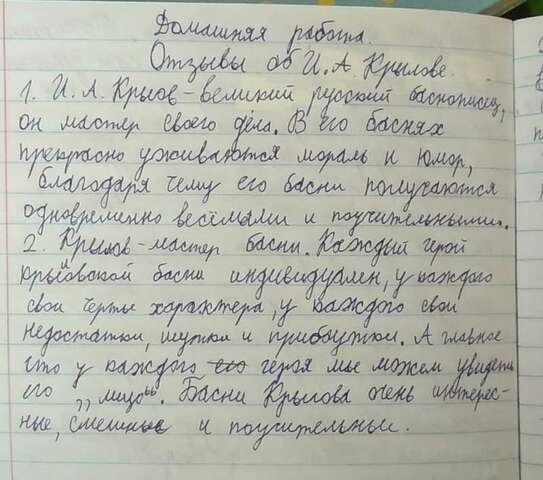 Домашняя работа.
Отзывы об И. А. Крылове.
1. И. А. Крылов - великий русский баснописец,
он мастер своего дела. В его баснях
прекрасно уживаются мораль и юмор,
благодаря чему его басни получаются
одновременно весёлыми и поучительными.
2. Крылов - мастер басни. Каждый герой
крыловской басни индивидуален, у каждого
свои черты характера, у каждого свои
недостатки, шутки и прибаутки. А главное
что у каждого его героя мы можем увидеть
его „лицо“. Басни Крылова очень интерес-
ные, смешные и поучительные.